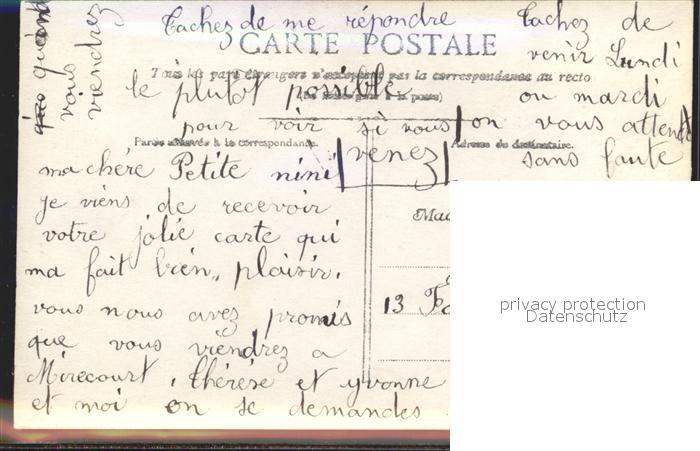 Tachez de me répondre
CARTE POSTALE
Tous les pays étrangers n'acceptent pas la correspondance au recto
le plutot possible
pour voir si vous
venez
Tachez de
venir Lundi
ou mardi
on vous attend
sans faute
Partie réservée à la correspondance.
Adresse du destinataire.
ma chére Petite nini
je viens de recevoir
votre jolie carte qui
ma fait bien, plaisir.
vous nous avez promis
que vous viendrez a
Mirecourt, thérèse et yvonne
et moi on se demandes
quand
vous
viendrez
Mad
13
privacy protection
Datenschutz